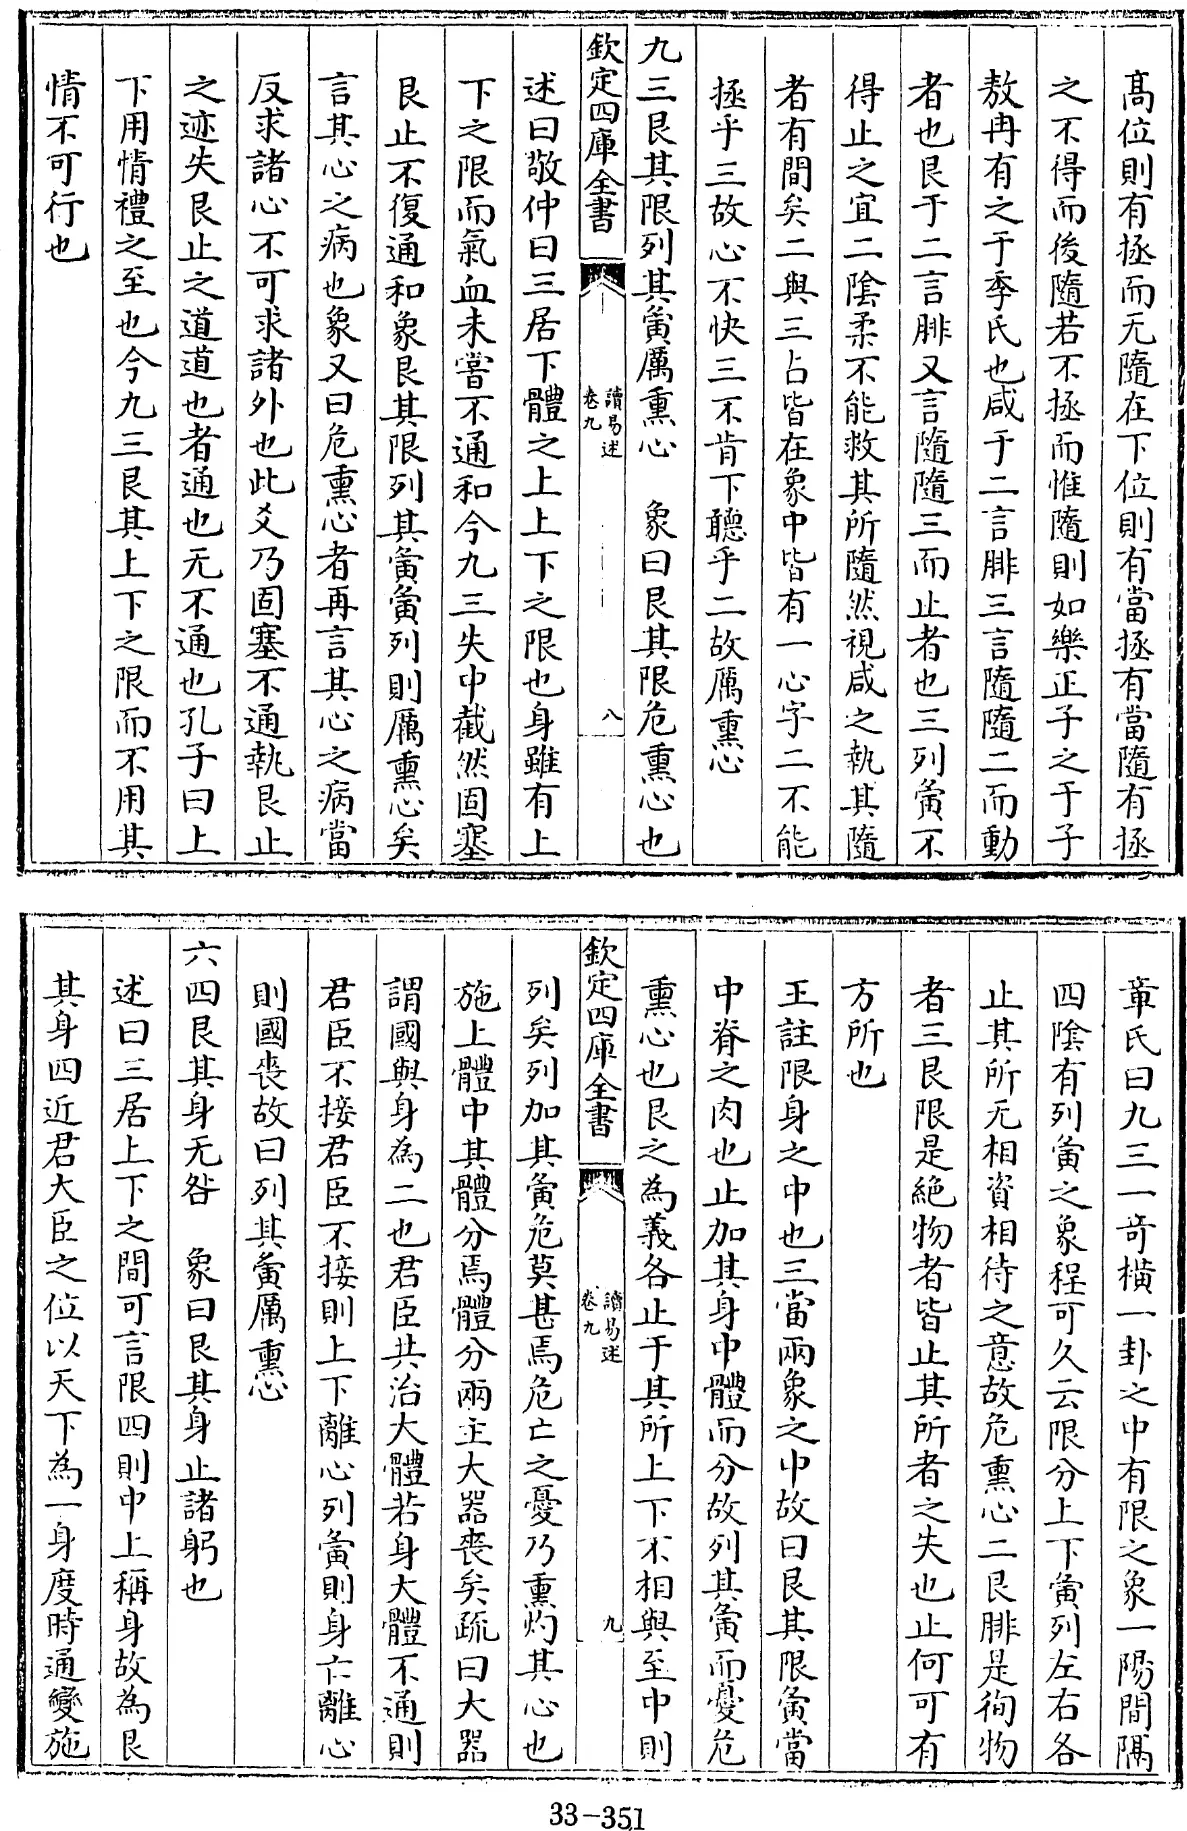 髙位則有拯而无隨在下位則有當拯有當隨有拯
之不得而後隨若不拯而惟隨則如樂正子之于子
敖冉有之于季氏也咸于二言腓三言隨隨二而動
者也艮于二言腓又言隨隨三而止者也三列夤不
得止之宜二陰柔不能救其所隨然視咸之執其隨
者有間矣二與三占皆在象中皆有一心字二不能
拯乎三故心不快三不肯下聽乎二故厲熏心
九三艮其限列其夤厲熏心　象曰艮其限危熏心也
欽定四庫全書
讀易述
卷九
八
述曰敬仲曰三居下體之上上下之限也身雖有上
下之限而氣血未嘗不通和今九三失中截然固塞
艮止不復通和象艮其限列其夤夤列則厲熏心矣
言其心之病也象又曰危熏心者再言其心之病當
反求諸心不可求諸外也此爻乃固塞不通執艮止
之迹失艮止之道道也者通也无不通也孔子曰上
下用情禮之至也今九三艮其上下之限而不用其
情不可行也
章氏曰九三一奇橫一卦之中有限之象一陽間隔
四陰有列夤之象程可久云限分上下夤列左右各
止其所无相資相待之意故危熏心二艮腓是徇物
者三艮限是絶物者皆止其所者之失也止何可有
方所也
王註限身之中也三當兩象之中故曰艮其限夤當
中脊之肉也止加其身中體而分故列其夤而憂危
熏心也艮之為義各止于其所上下不相與至中則
欽定四庫全書
讀易述
卷九
九
列矣列加其夤危莫甚焉危亡之憂乃熏灼其心也
施上體中其體分焉體分兩主大器喪矣疏曰大器
謂國與身為二也君臣共治大體若身大體不通則
君臣不接君臣不接則上下離心列夤則身亡離心
則國喪故曰列其夤厲熏心
六四艮其身无咎　象曰艮其身止諸躬也
述曰三居上下之間可言限四則中上稱身故為艮
其身四近君大臣之位以天下為一身度時通變施
33-351